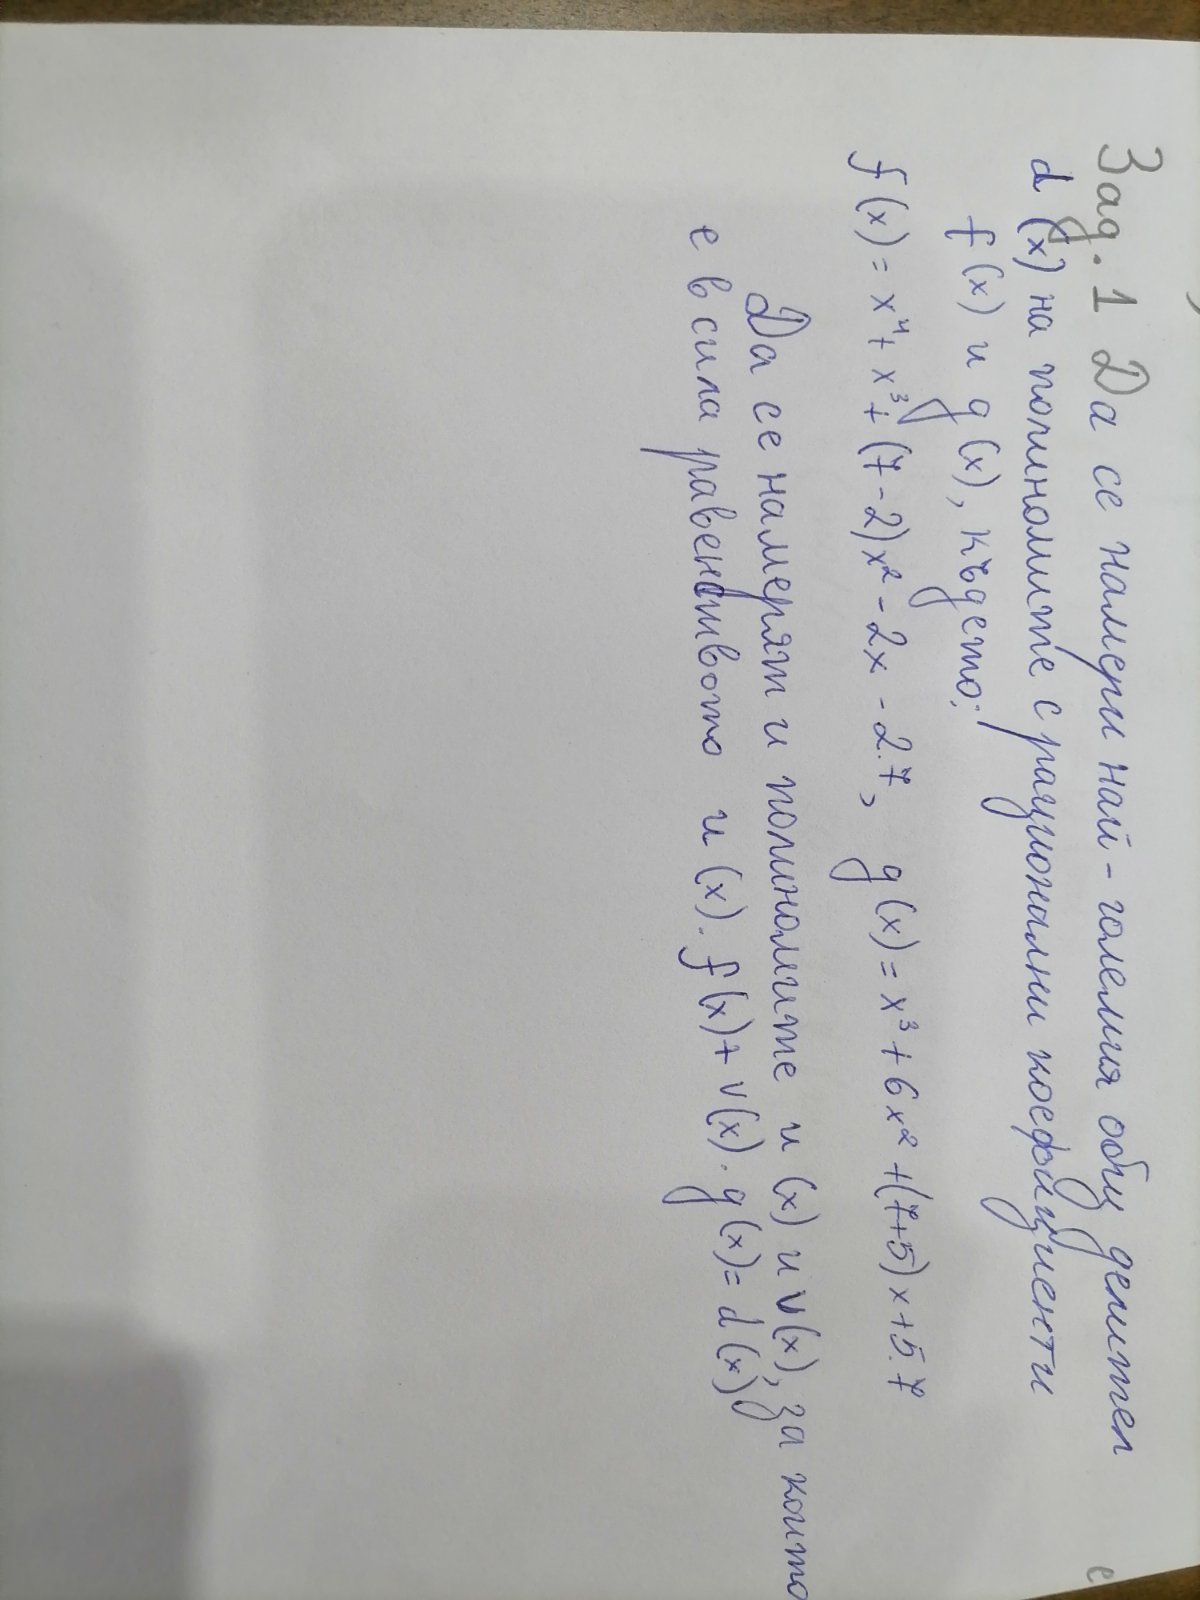 Зад. 1 Да се намери най-големия общ делител
d(x) на полиномите с рационални коефициенти
f(x) и g(x), където:
f(x) = x⁴ + x³ + (7-2)x² - 2x - 2.7, g(x) = x³ + 6x² + (7+5)x + 5.7
Да се намерят и полиномите u(x) и v(x), за които
е в сила равенството u(x).f(x) + v(x).g(x) = d(x)